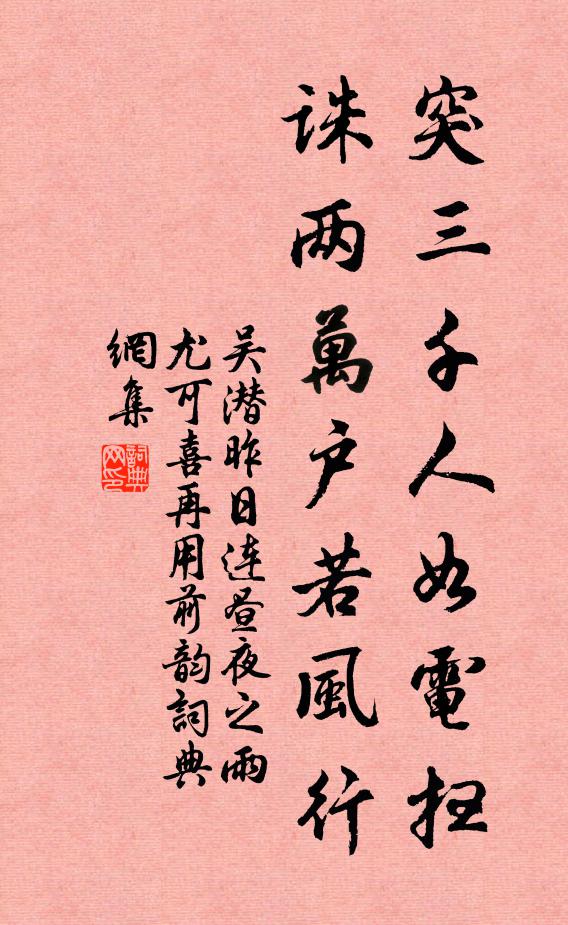 突三千人如電扫
诛两萬户若風行
吴潜昨日连昼夜之雨
尤可喜再用前韵詞典
網集
詞典
网印